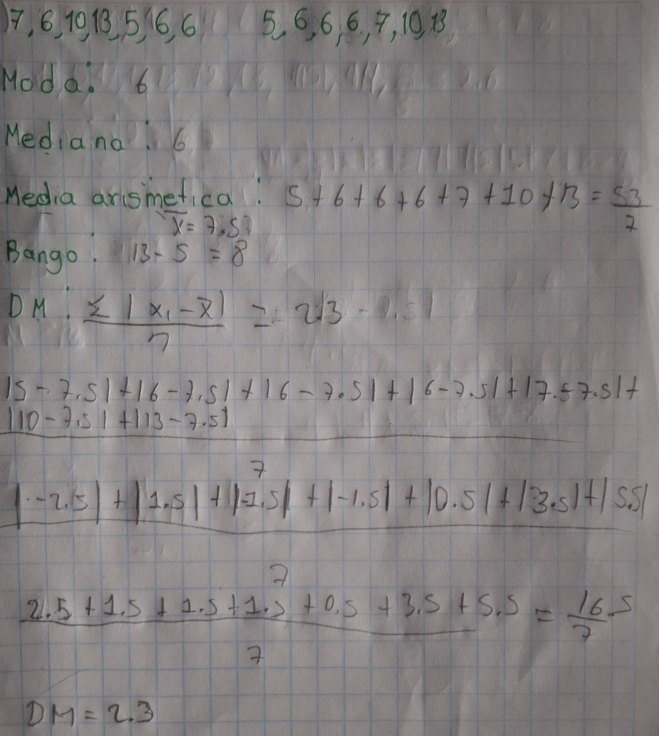 7, 6, 10, 13, 5, 6, 6 5, 6, 6, 6, 7, 10, 13
Moda: 6
Mediana: 6
Media arismetica: 5+6+6+6+7+10+13 = 53/7
x̄ = 7.5
Bango: 13 - 5 = 8
DM: Σ | x₁ - x̄ | / n = 2.3
|5 - 7.5| + |6 - 7.5| + |6 - 7.5| + |6 - 7.5| + |7 - 7.5| +
|10 - 7.5| + |13 - 7.5|
7
|-2.5| + |1.5| + |-1.5| + |-1.5| + |0.5| + |3.5| + |5.5|
7
2.5 + 1.5 + 1.5 + 1.5 + 0.5 + 3.5 + 5.5 = 16.5/7
7
DM = 2.3